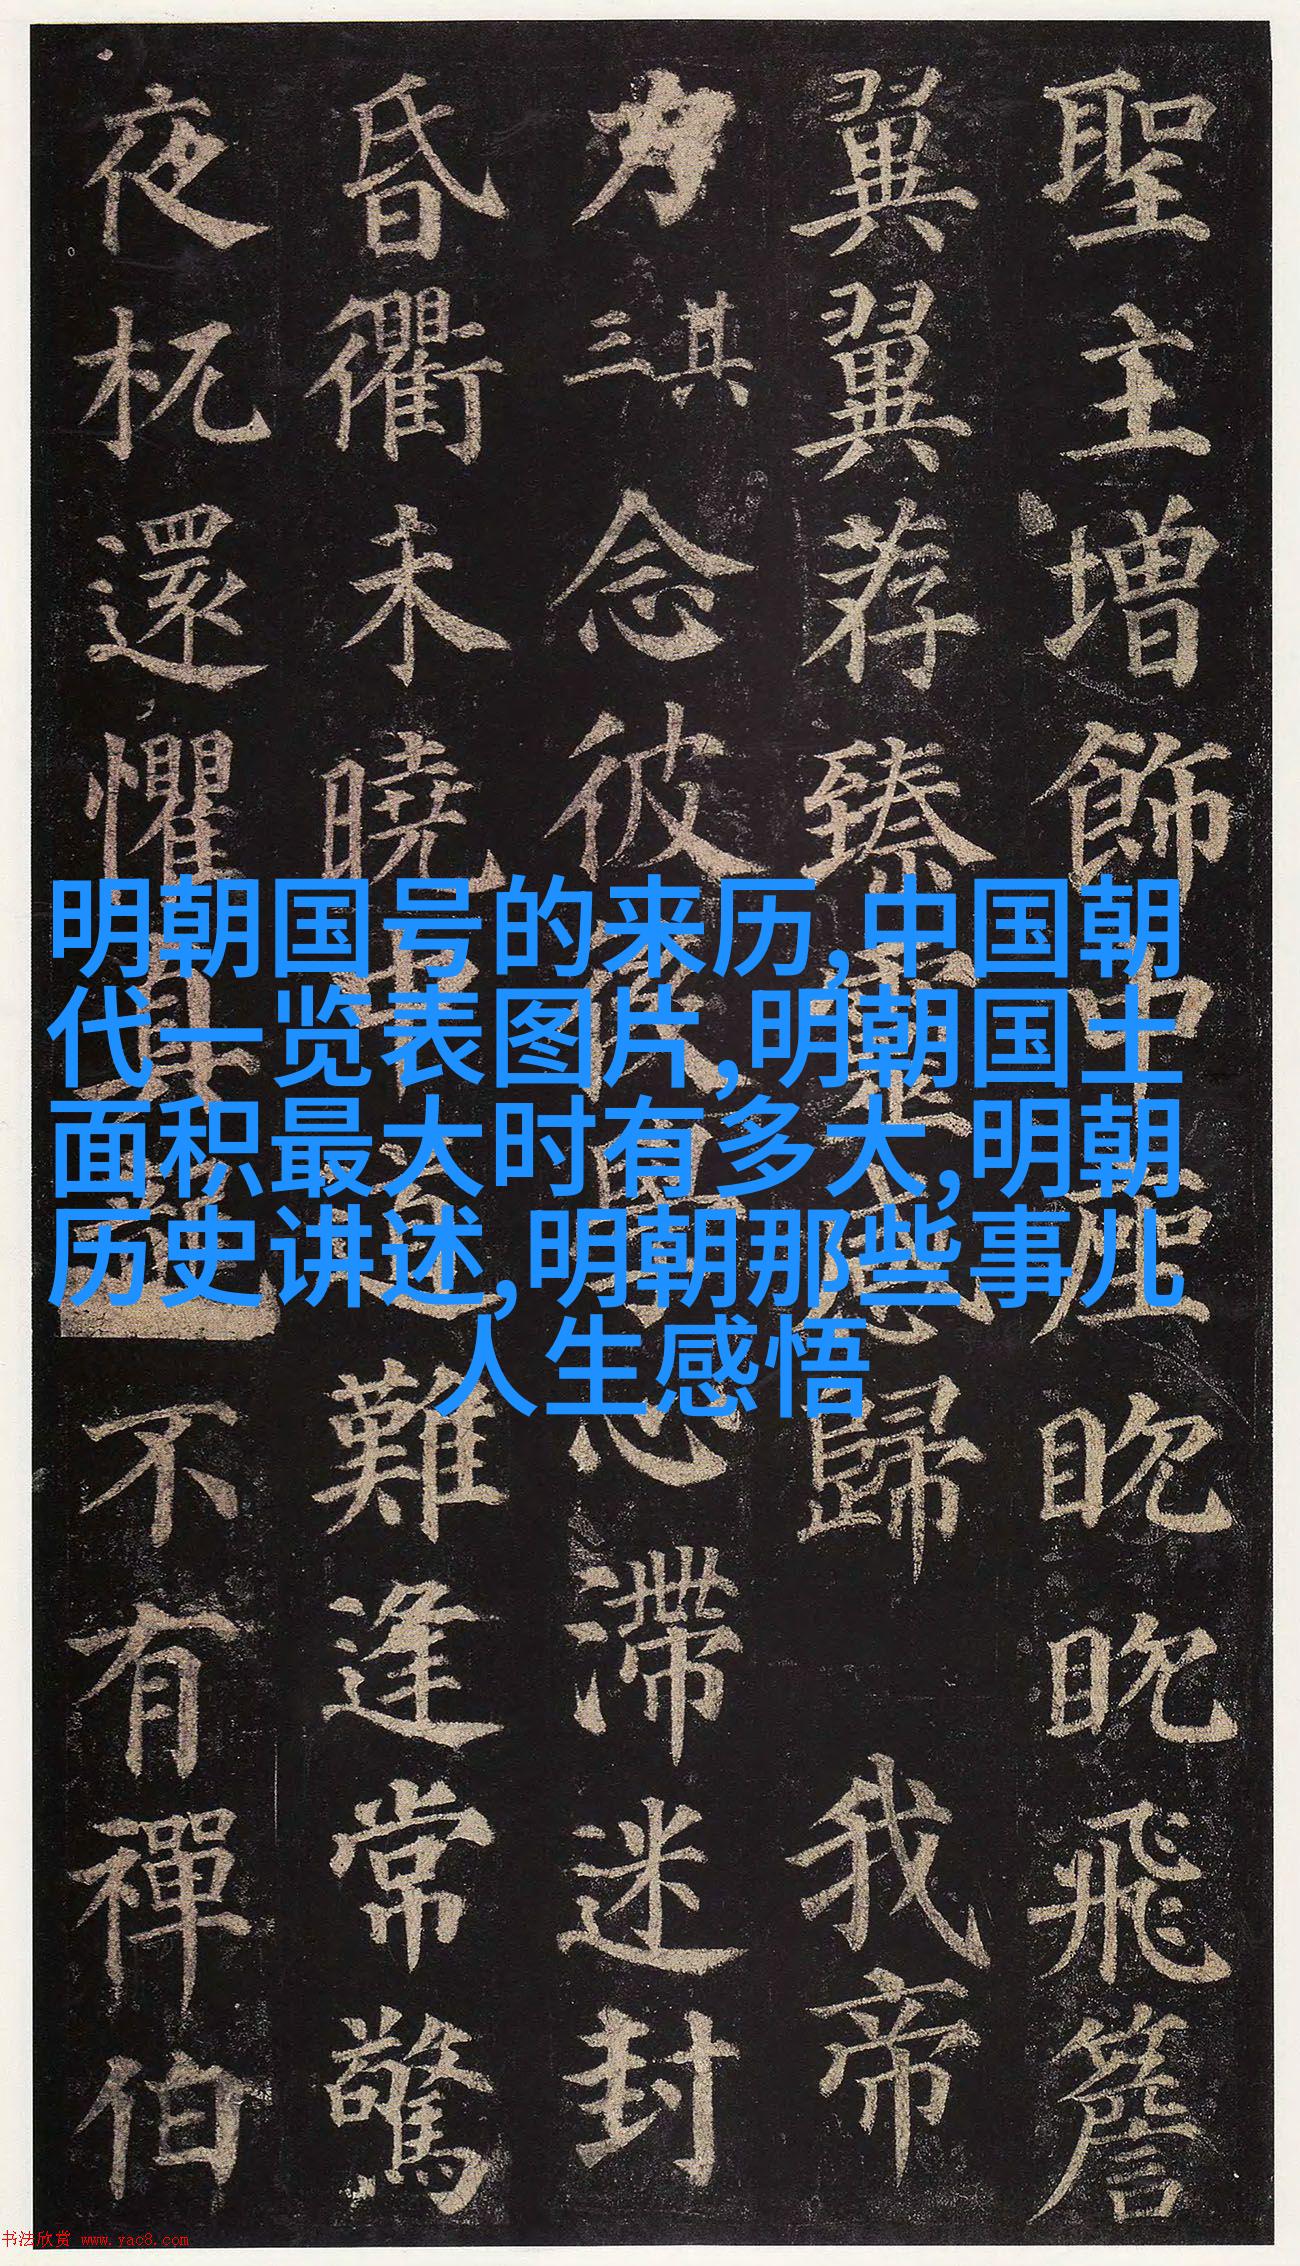 聖主增飾中座眈眈飛簷
翼翼荐臻靈感歸 我帝
力 其三 念彼後學心滯迷封
昏衢未曉中道難逢常驚
夜杌還懼真龍不有禪伯
明朝国号的来历,中国朝
代一览表图片,明朝国土
面积最大时有多大,明朝
历史讲述,明朝那些事儿
人生感悟
书法欣赏 www.yac8.com